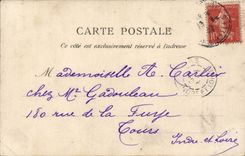 CARTE POSTALE
Ce côté est exclusivement réservé à l'adresse
Mademoiselle A. Carlier
chez Mr Gadouleau
180 rue de la Fuye
Tours
Indre et Loire